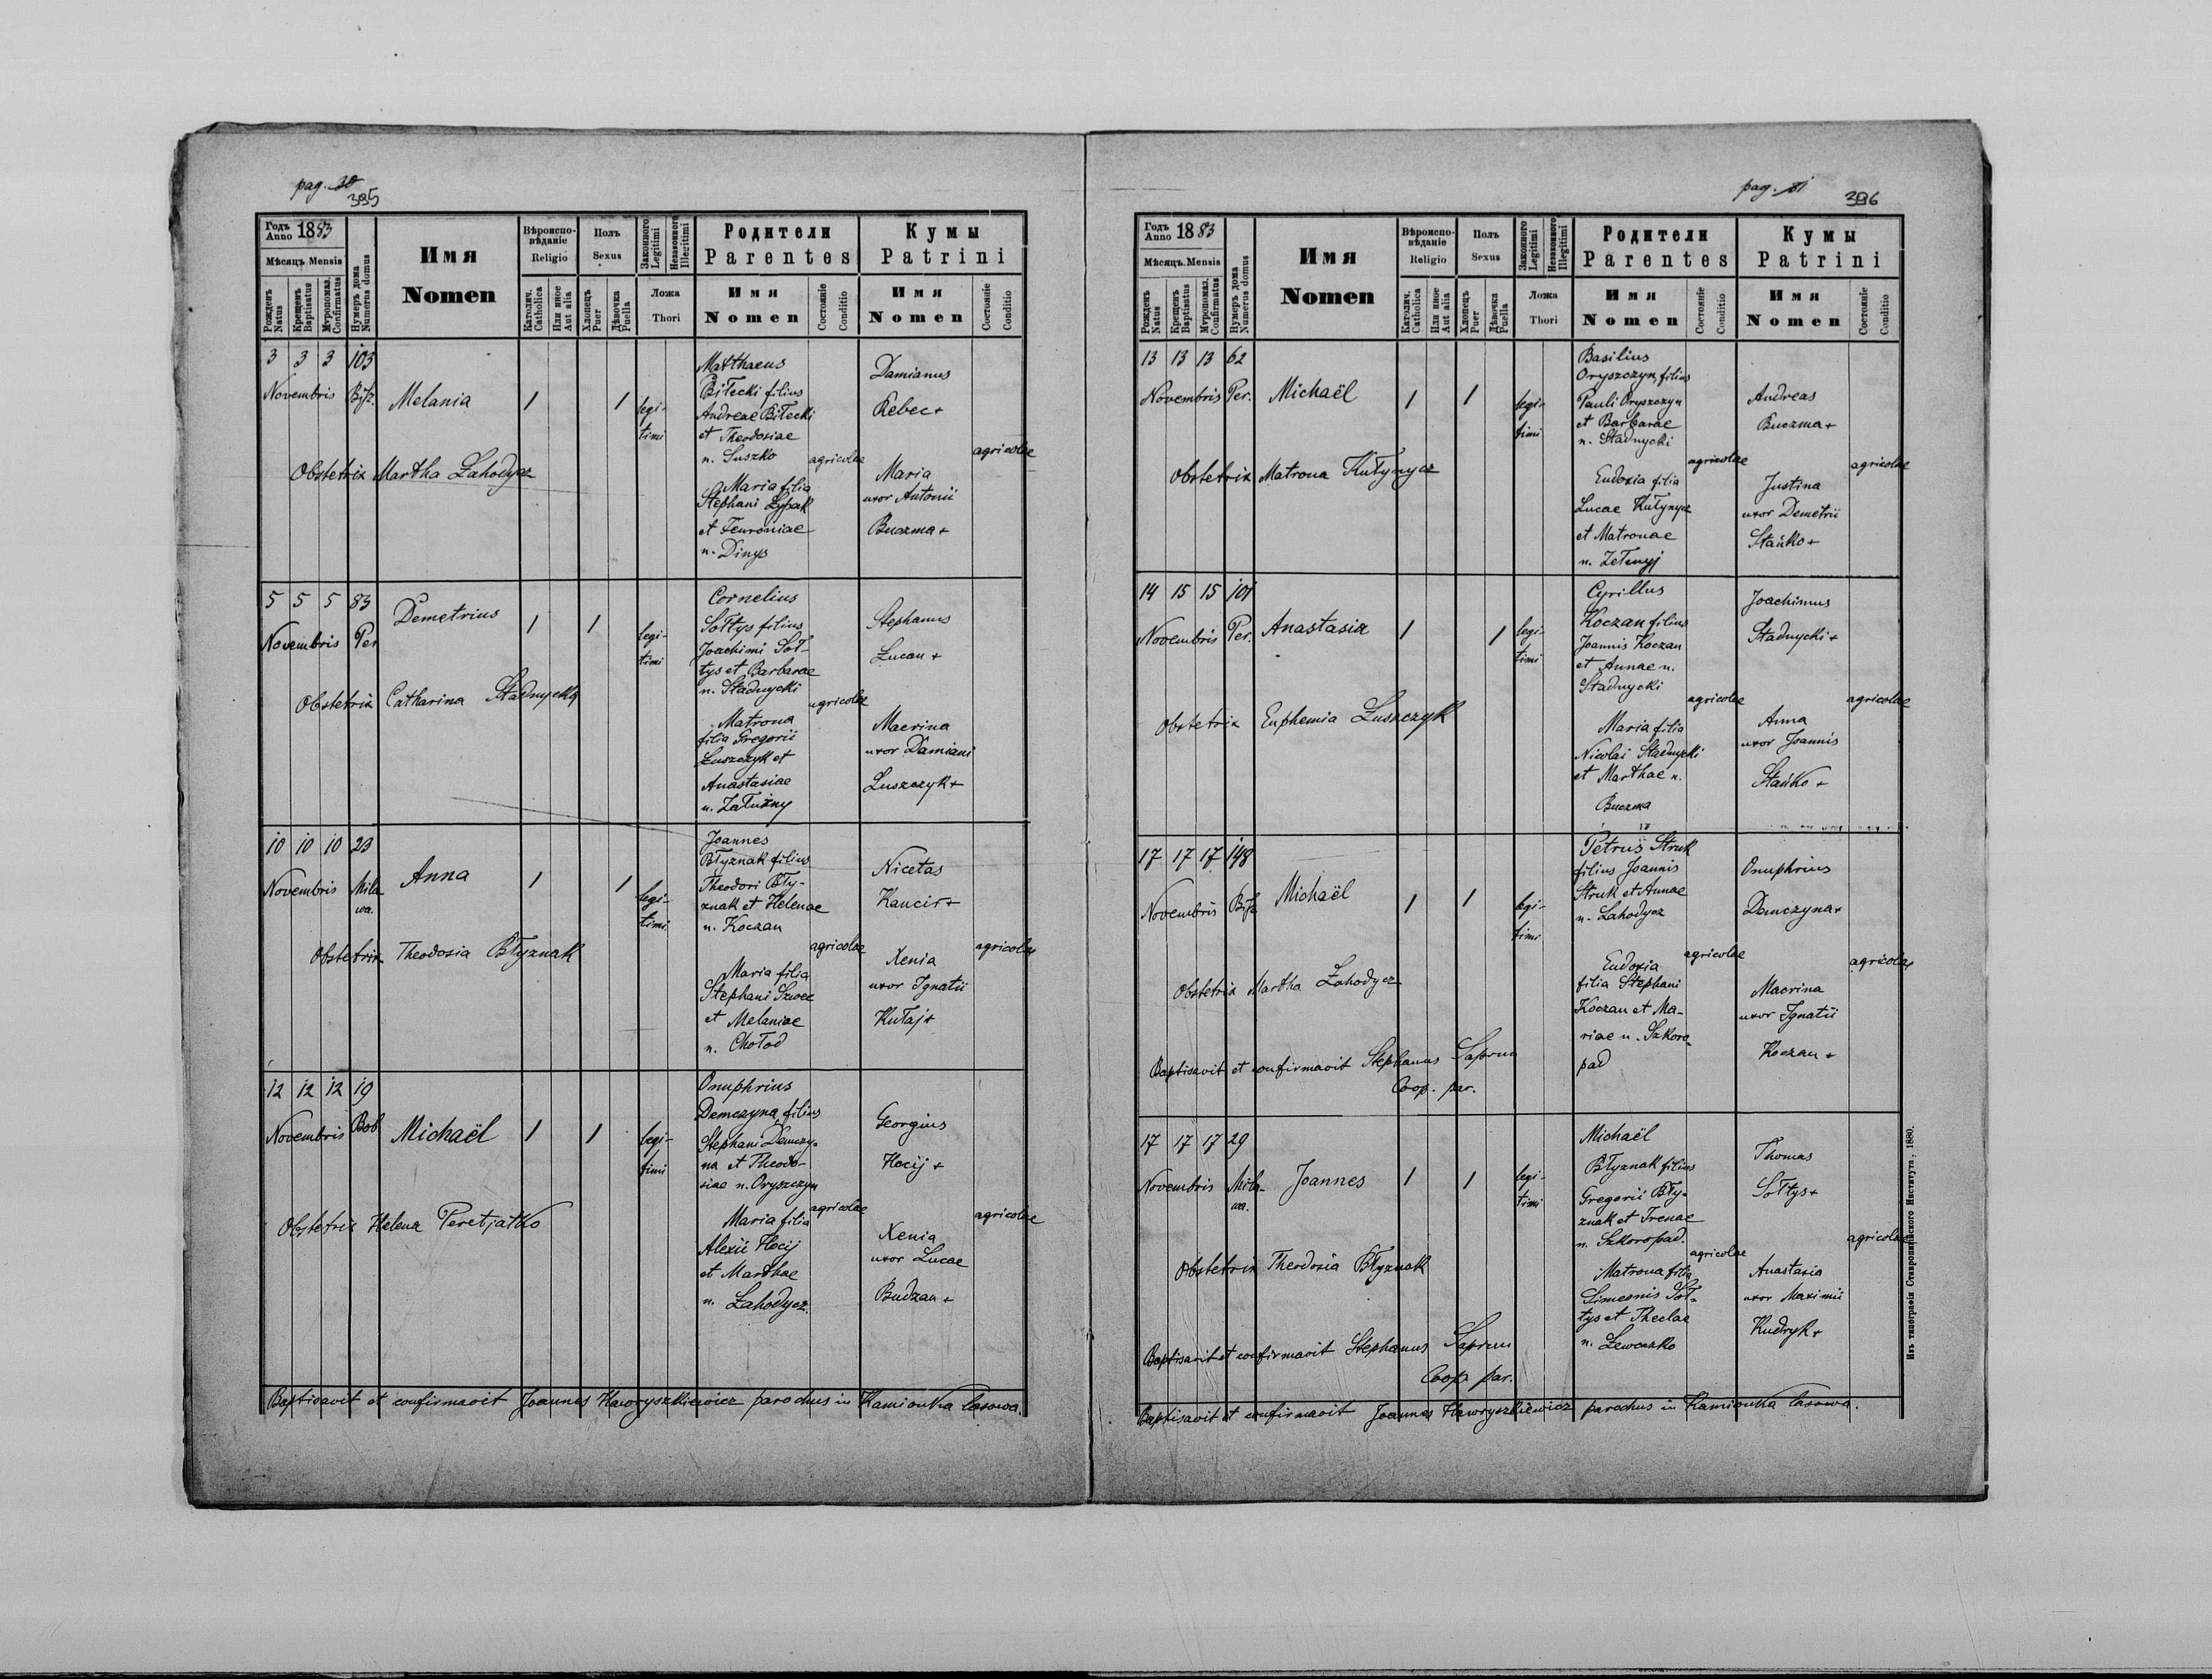 pag. 30
395
Годъ Anno 1883
Мѣсяцъ Mensis
Рожденъ Natus
Крещенъ Baptisatus
Мѵропомаз. Confirmatus
Нумеръ дома Numerus domus
Имя
Nomen
Вѣроиспо-
вѣданіе
Religio
Католич. Catholica
Или иное Aut alia
Полъ
Sexus
Хлопецъ Puer
Дѣвочка Puella
Законного Legitimi
Незаконного Illegitimi
Ложа
Thori
Родители
Parentes
Имя
Nomen
Состояніе Conditio
Кумы
Patrini
Имя
Nomen
Состояніе Conditio
3 3 3 103
Novembris Bisz.
Melania
1 1
legi-
timi
Matthaeus
Biłecki filius
Andreae Biłecki
et Theodosiae
n. Suszko
agricolae
Maria filia
Stephani Łysak
et Fevroniae
n. Dinys
Damianus
Rebec +
agricolae
Maria
uxor Antonii
Buczma +
Obstetrix Martha Łahodycz
5 5 5 83
Novembris Per
Demetrius
1 1
legi-
timi
Cornelius
Sołtys filius
Joachimi Soł-
tys et Barbarae
n. Stadnycki
agricolae
Matrona
filia Gregorii
Łuszczyk et
Anastasiae
n. Załużny
Stephanus
Łucan +
Macrina
uxor Damiani
Łuszczyk +
Obstetrix Catharina Stadnycka
10 10 10 23
Novembris Mila-
wa.
Anna
1 1
legi-
timi
Joannes
Błyznak filius
Theodori Bły-
znak et Helenae
n. Koczan
agricolae
Maria filia
Stephani Szwec
et Melaniae
n. Chołod
Nicetas
Kancir +
agricolae
Xenia
uxor Ignatii
Kułaj +
Obstetrix Theodosia Błyznak
12 12 12 19
Novembris Bob
Michaël
1 1
legi-
timi
Onuphrius
Demczyna filius
Stephani Demczy-
na et Theodo-
siae n. Oryszczyn
agricolae
Maria filia
Alexii Hocij
et Marthae
n. Łahodycz.
Georgius
Hocij +
agricolae
Xenia
uxor Lucae
Budzan +
Obstetrix Helena Peretjatko
Baptisavit et confirmavit Joannes Hawryszkiewicz parochus in Kamionka lasowa.
pag. 31
396
Годъ Anno 1883
Мѣсяцъ Mensis
Рожденъ Natus
Крещенъ Baptisatus
Мѵропомаз. Confirmatus
Нумеръ дома Numerus domus
Имя
Nomen
Вѣроиспо-
вѣданіе
Religio
Католич. Catholica
Или иное Aut alia
Полъ
Sexus
Хлопецъ Puer
Дѣвочка Puella
Законного Legitimi
Незаконного Illegitimi
Ложа
Thori
Родители
Parentes
Имя
Nomen
Состояніе Conditio
Кумы
Patrini
Имя
Nomen
Состояніе Conditio
13 13 13 62
Novembris Per.
Michaël
1 1
legi-
timi
Basilius
Oryszczyn filius
Pauli Oryszczyn
et Barbarae
n. Stadnycki
agricolae
Eudoxia filia
Lucae Kułynycz
et Matronae
n. Zełenyj
Andreas
Buczma +
agricolae
Justina
uxor Demetrii
Stańko +
Obstetrix Matrona Kułynycz
14 15 15 101
Novembris Per.
Anastasia
1 1
legi-
timi
Cyrillus
Koczan filius
Joannis Koczan
et Annae n.
Stadnycki
agricolae
Maria filia
Nicolai Stadnycki
et Marthae n.
Buczma
Joachimus
Stadnycki +
agricolae
Anna
uxor Joannis
Stańko +
Obstetrix Euphemia Łuszczyk
17 17 17 148
Novembris Bisz
Michaël
1 1
legi-
timi
Petrus Struk
filius Joannis
Struk et Annae
n. Łahodycz
agricolae
Eudoxia
filia Stephani
Koczan et Ma-
riae n. Szkoro-
pad
Onuphrius
Demczyna +
agricolae
Macrina
uxor Ignatii
Koczan +
Obstetrix Martha Łahodycz
Baptisavit et confirmavit Stephanus Saprun
Coop. par.
17 17 17 29
Novembris Mila-
wa.
Joannes
1 1
legi-
timi
Michaël
Błyznak filius
Gregorii Bły-
znak et Irenae
n. Szkoropad.
agricolae
Matrona filia
Simeonis Soł-
tys et Theclae
n. Łewoczko
Thomas
Sołtys +
agricolae
Anastasia
uxor Maximii
Kudryk +
Obstetrix Theodosia Błyznak
Baptisavit et confirmavit Stephanus Saprun
Coop. par.
Baptisavit et confirmavit Joannes Hawryszkiewicz parochus in Kamionka lasowa.
Изъ типографіи Ставропигійского Института, 1880.